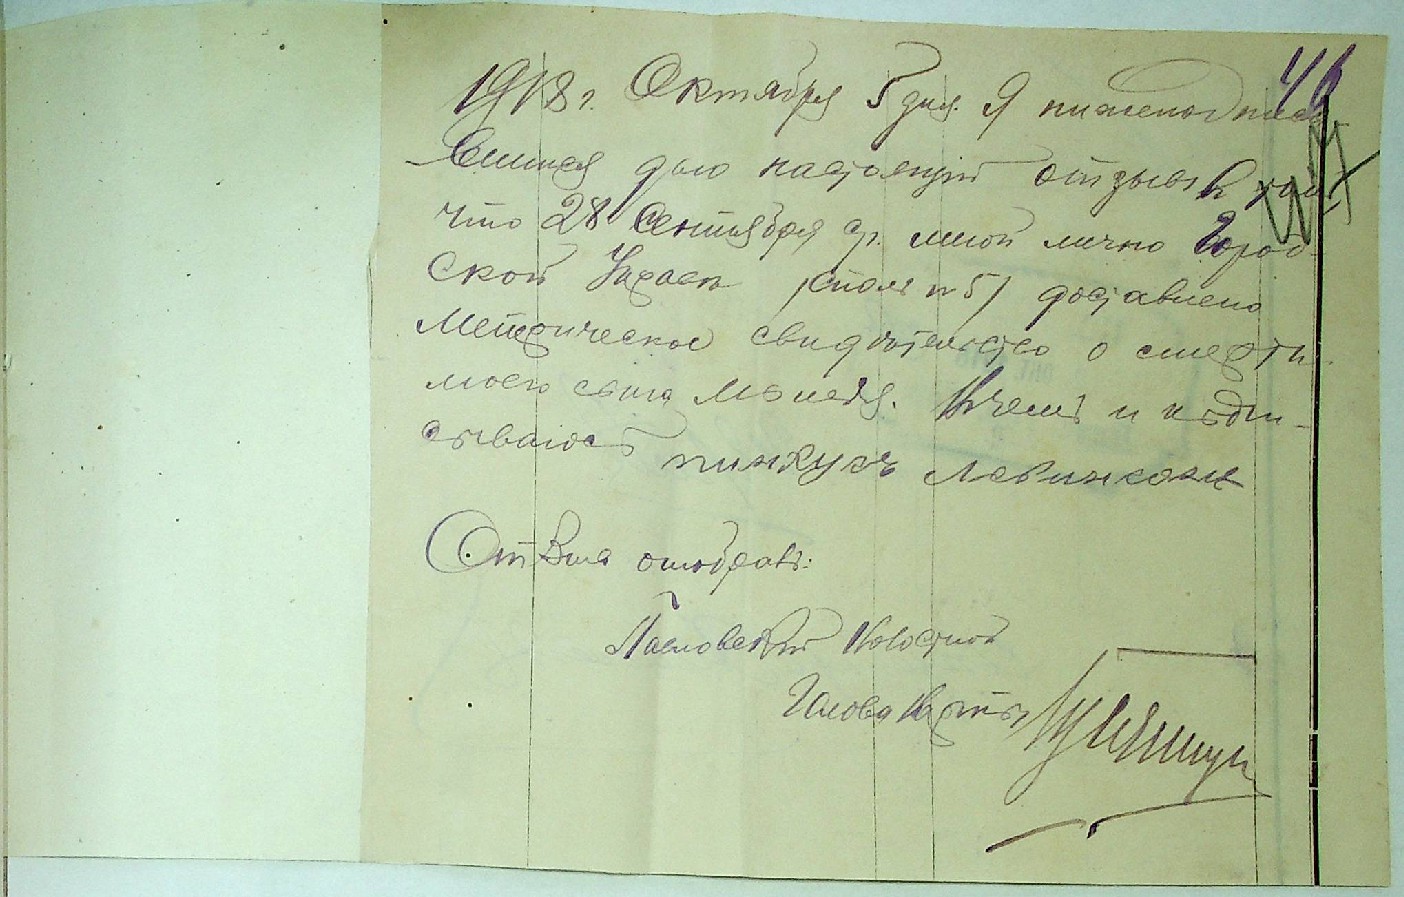 46
1918 г. Октября 5 дня. Я нижеподписа
вшийся даю настоящий отзывъ в том
что 28 Сентября с/г. мной лично Город-
ской Управѣ /столъ № 5/ доставлено
Метрическое свидѣтельство о смерти
моего сына. Въ чемъ и подпи-
сываюсь Пинкусъ Левинсонъ
Отзывъ отобралъ:
Павловский
Голова